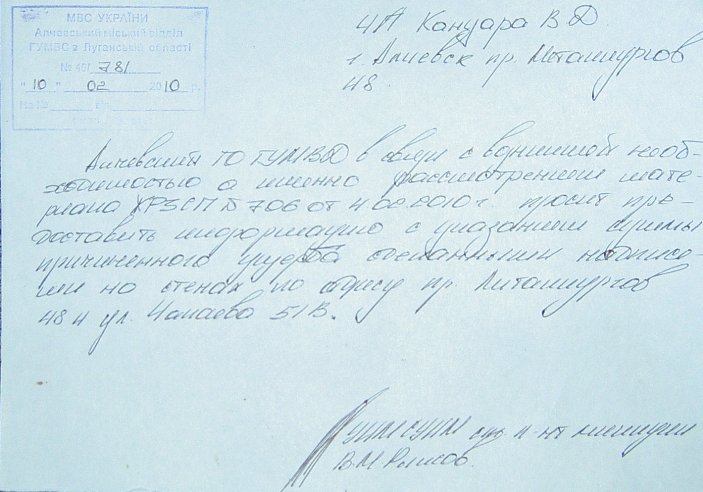 МВС УКРАЇНИ
Алчевський міський відділ
ГУМВС в Луганській області
№ 46/ 781
"10" 02 2010 р.
На № від
ЧП Кануара В Д
г. Алчевск пр. Металлургов
48
Алчевский ГО ГУМВД в связи с возникшей необ-
ходимостью а именно рассмотрением мате-
риала ЖРЗСП № 706 от просит пре-
доставить информацию с указанием суммы
причиненного ущерба сделанными надпися-
ми на стенах по адресу пр. Металлургов
48 и ул. Чапаева 51 В.
УИМ СУИМ л-нт милиции
В М Рыжов.